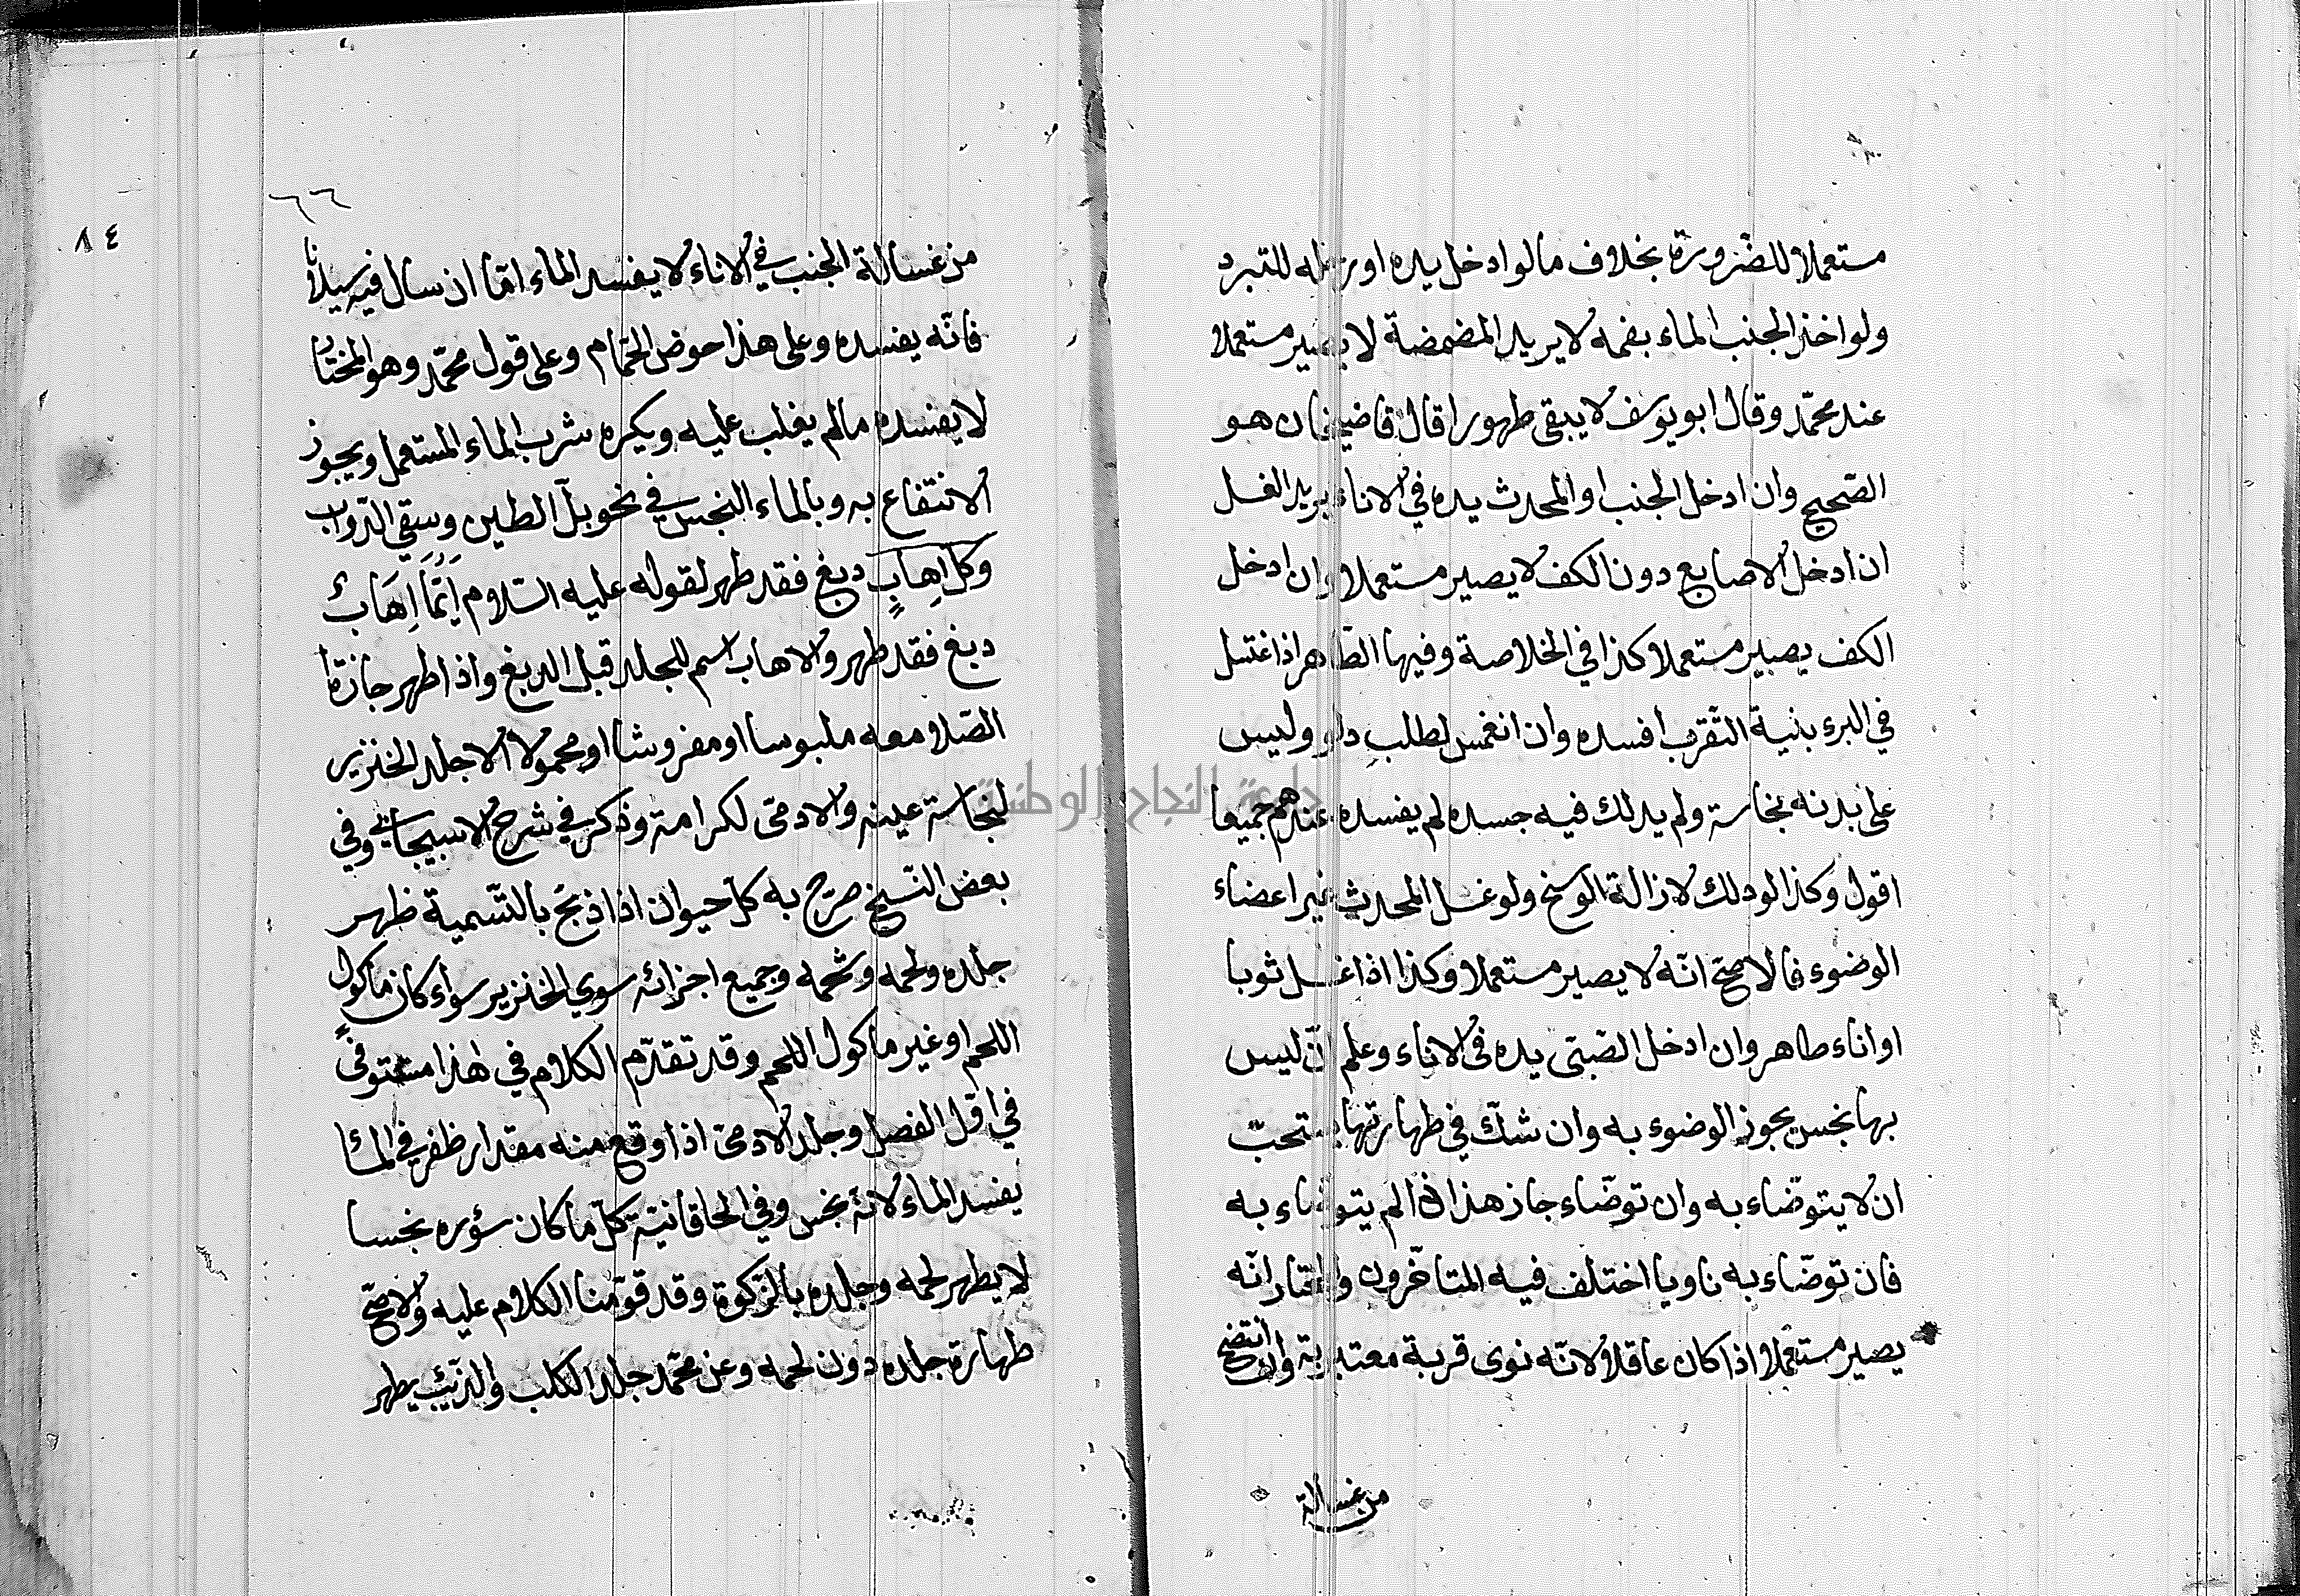 مستعملا للضرورة بخلاف ما لو ادخل يده او رجله للتبرد
ولو اخذ الجنب الماء بفمه لا يريد المضمضة لا يصير مستعملا
عند محمّد وقال ابو يوسف لا يبقى طهورا قال قاضيخان هو
الصّحيح وان ادخل الجنب او المحدث يده في الاناء يريد الغسل
ان ادخل الاصابع دون الكف لا يصير مستعملا وان ادخل
الكف يصير مستعملا كذا في الخلاصة وفيها الطاهر اذا اغتسل
في البرء بنية التّقرب افسده وان انغمس لطلب دلو وليس
على بدنه نجاسة ولم يدلك فيه جسده لم يفسده عندهم جميعا
اقول وكذا لو دلك لازالة الوسخ ولو غسل المحدث غير اعضاء
الوضوء فالاصحّ انّه لا يصير مستعملا وكذا اذا غسل ثوبا
او اناء طاهر وان ادخل الصّبى يده فى الاناء وعلم انّ ليس
بها نجس يجوز الوضوء به وان شكّ في طهارتها يستحبّ
ان لا يتوضّاء به وان توضّاء جاز هذا اذا لم يتوضاء به
فان توضّاء به ناويا اختلف فيه المتاخّرون والمختار انّه
يصير مستعملا اذا كان عاقلا لانّه نوى قربة معتبرة وان انتضح
من غسالة
٦٦
٨٤
من غسالة الجنب في الاناء لا يفسد الماء امّا ان سال فيه سيلانا
فانّه يفسده وعلى هذا حوض الحمّام وعلى قول محمّد وهو المختار
لا يفسده مالم يغلب عليه ويكره شرب الماء المستعمل ويجوز
الانتفاع به وبالماء النجس في نحو بلّ الطين وسقي الدّواب
وكلّ اِهابٍ دبغ فقد طهر لقوله عليه السّلام اَيّمَا اِهَاب
دبغ فقد طهر والاهاب اسم للجلد قبل الدبغ واذا طهر جازت
الصّلاة معه ملبوسا او مفروشا او محمولا الا جلد الخنزير
لنجاسة عينه والادمى لكرامته وذكر في شرح الاسبيجابي وفي
بعض النّسخ صرّح به كلّ حيوان اذا ذبح بالتّسمية طهر
جلده ولحمه وشحمه وجميع اجزائه سوي الخنزير سواء كان ماكول
اللحم او غير ماكول اللحم وقد تقدّم الكلام في هذا مستوفىً
في اوّل الفصل وجلد الادمىّ اذا وقع منه مقدار ظفر في الماء
يفسد الماء لانّه نجس وفي الخاقانيّة كلّ ما كان سؤره نجسا
لا يطهر لحمه وجلده بالزّكوة وقد قدّمنا الكلام عليه والاصحّ
طهارة جلده دون لحمه وعن محمّد جلد الكلب والذّئب يطهر
جامعة النجاح الوطنية